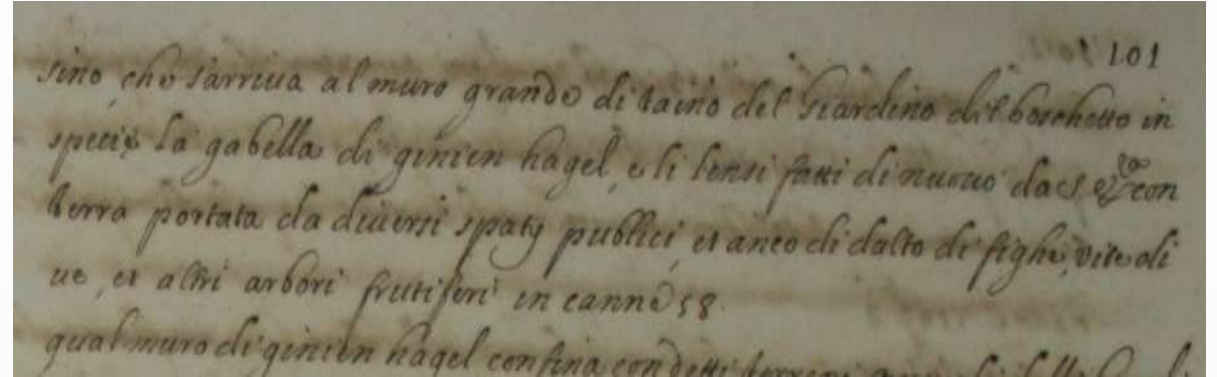 101
sino, che s'arriva al muro grande di taino del Giardino del boschetto in
specie la gabella di ginien hagel, e li lensi fatti di nuovo da S. E. con
terra portata da diversi spatij publici, et anco di dalto di fighi, vite oli
ve, et altri arbori frutiferi in canne 58.
qual muro di ginien hagel confina con detti terreni